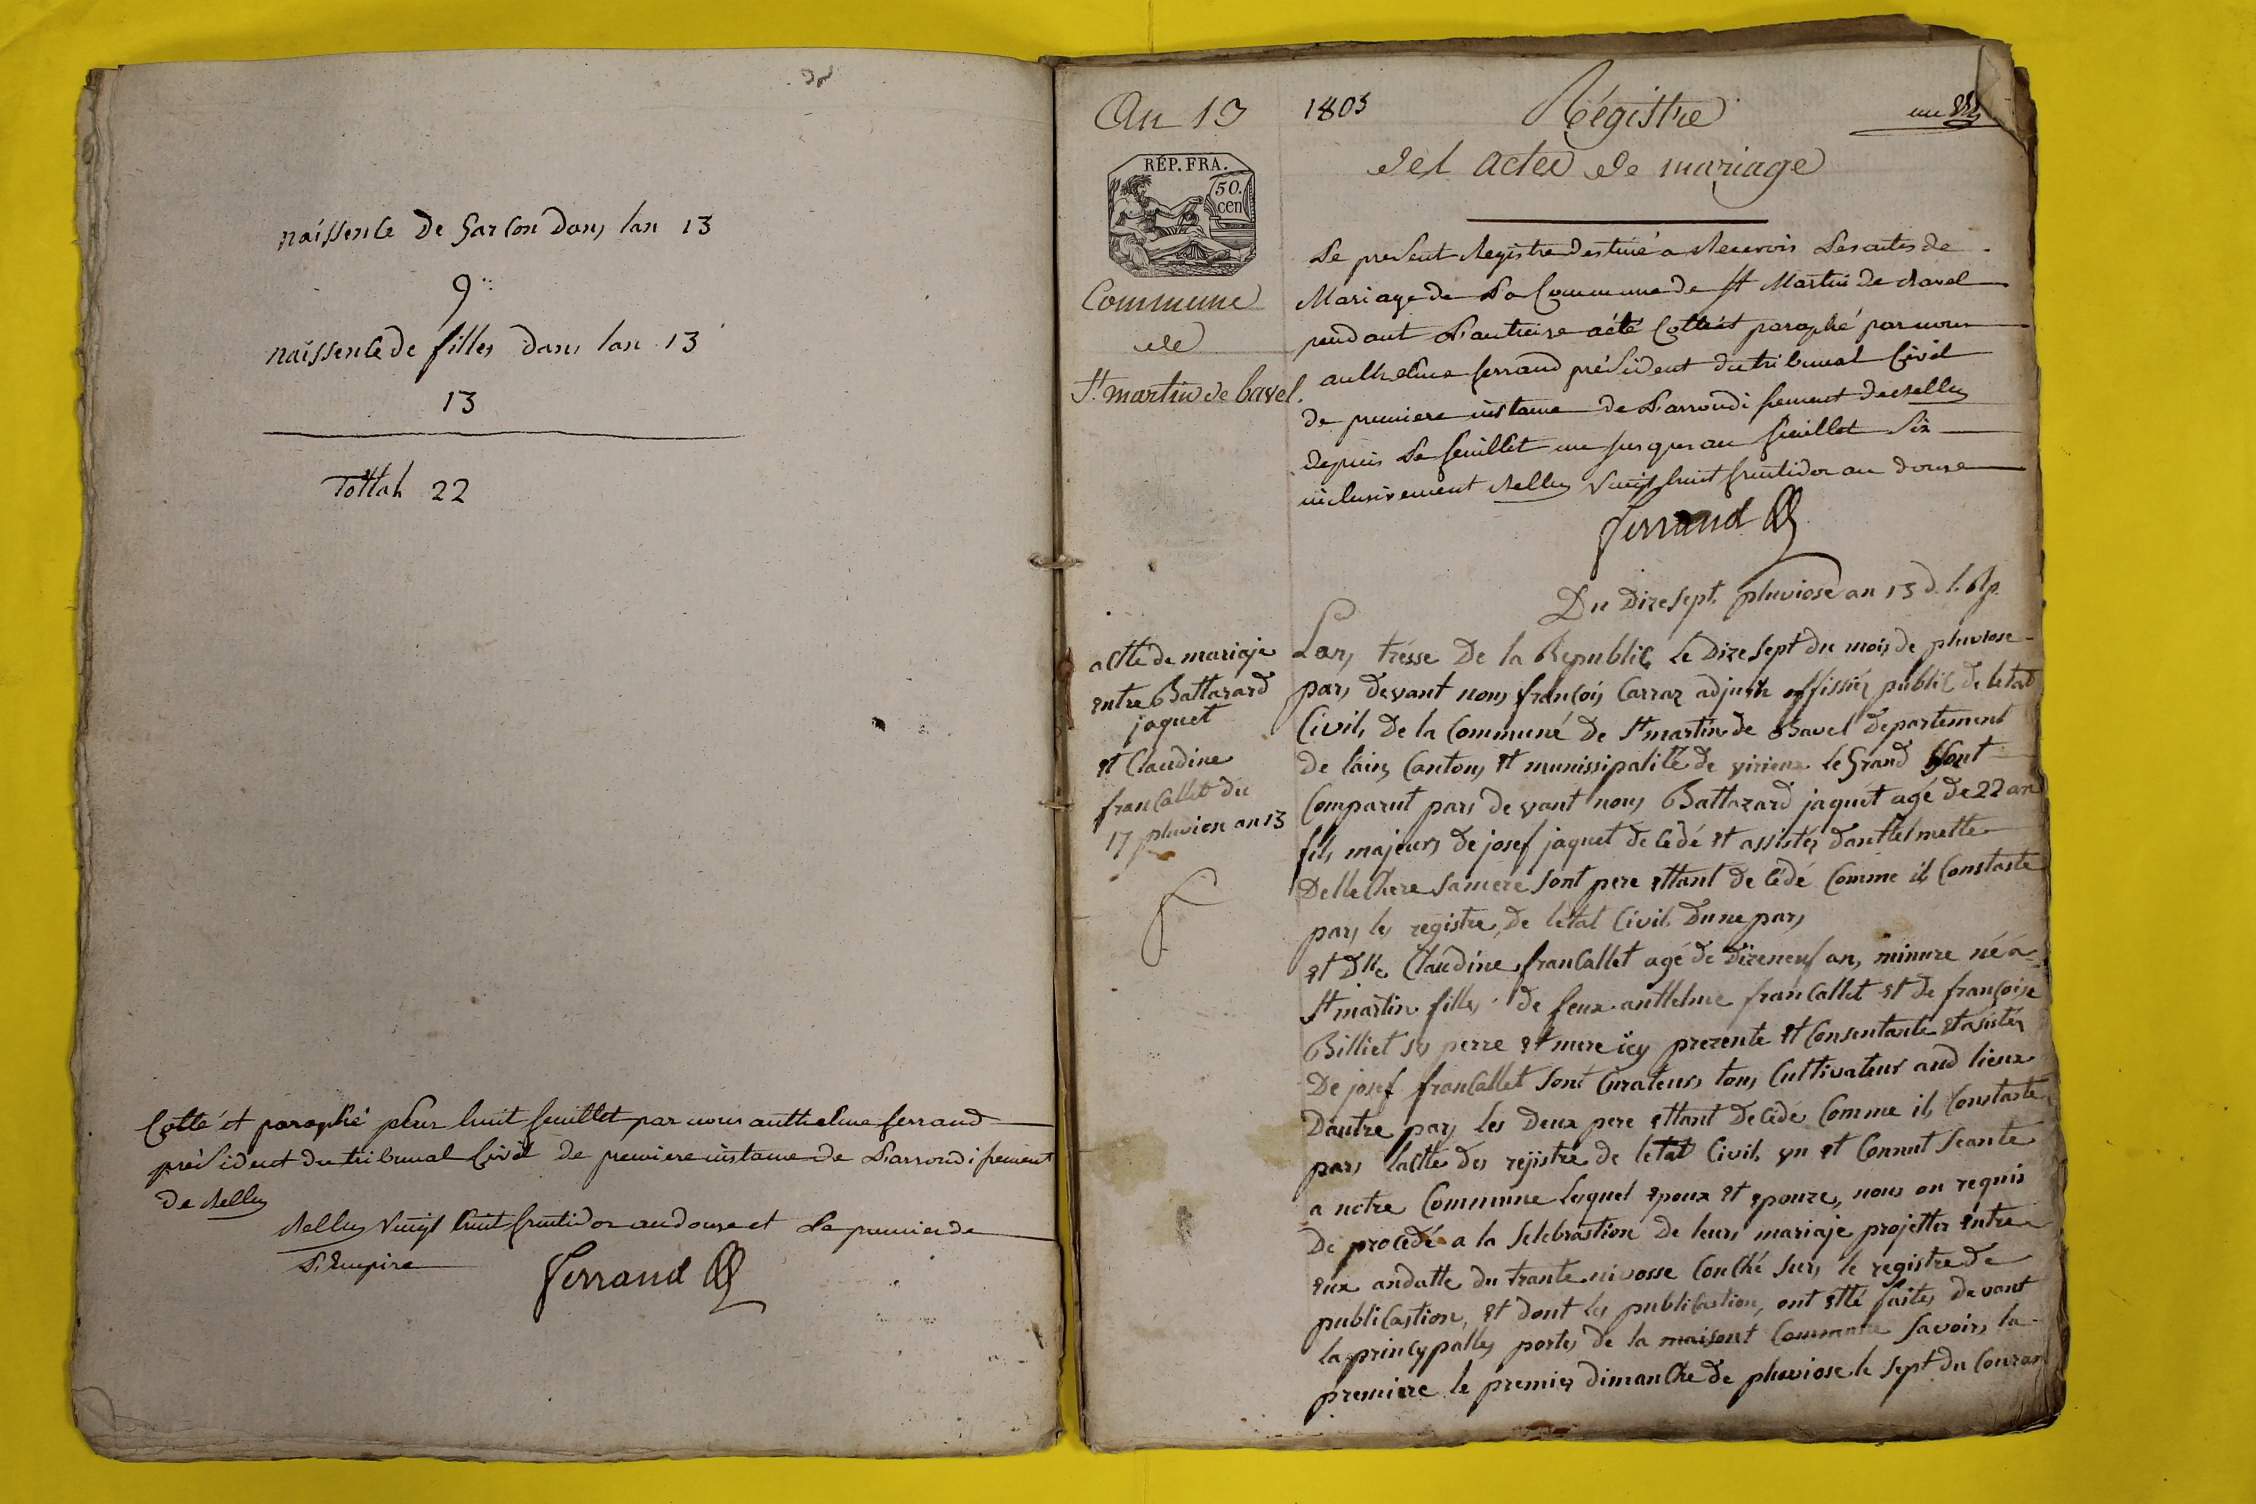 naissence de Garcon dans lan 13
9
naissence de filles dans lan 13
13
Tottah 22
Cotté et paraphé pour huit feuillet par nous anthelme ferrand
président du tribunal Civil de premiere instance de L'arrondissement
de Belley
Belley vingt huit fructidor an douze et Le premier de
L'Empire
Ferrand
An 13
1805
Régistre
des actes de mariage
un
RÉP. FRA.
50.
cen
Commune
de
St. martin de bavel.
Le present Registre destiné a Recevoir Les actes de
Mariage de La Commune de St Martin de Bavel
pendant L'an treize a été Cotté et paraphé par nous
anthelme ferrand président du tribunal Civil
de premiere instance de L'arrondissement de Belley
depuis Le feuillet un jusques au feuillet Six
inclusivement Belley vingt huit fructidor an douze
Ferrand
Du Dizesept pluviose an 13 d. l. Rp.
actte de mariaje
entre Battazard
jaquet
et Claudine
francallet du
17 pluviose an 13
Lan, tresse De la Republic Le Dizesept du mois de pluviose
pars devant nous françois Carraz adjuin offissier public de letat
Civil de la Commune de St martin de Bavel departement
de lain, Canton, et munissipalité de virieux le Grand
Comparut pars devant nous Battazard jaquet agé de 22 an
fils majeurs de josef jaquet de Cedé et assistés danttelmette
sa mere sont pere ettant de Cédé Comme il Constaste
pars les registre, de letat Civil Dune pars
et Dlle Claudine francallet agé de Dizeneuf an, minure né a
St martin filles de feux anttelme francallet et de françoise
Billiet ses perre et mere icy prezente et Consentante et asistés
De josef francallet sont Curateurs tous Cultivateurs aud lieux
Dautre pars les Deux pere ettant De Cedé Comme il Constaste
pars lactte des rejistre de letat Civil vu et Connut seante
a notre Commune lequel epoux et epouze, nous on requis
De procedé a la selebrastion De leurs mariaje projetter entre
eux andatte du trante nivosse Couché surs le registre de
publicastion, et dont les publicastion, ont etté faites devant
la princypalles portes de la maisont Commune savoirs la
premiere le premier dimanche de pluviose le sept du Couran